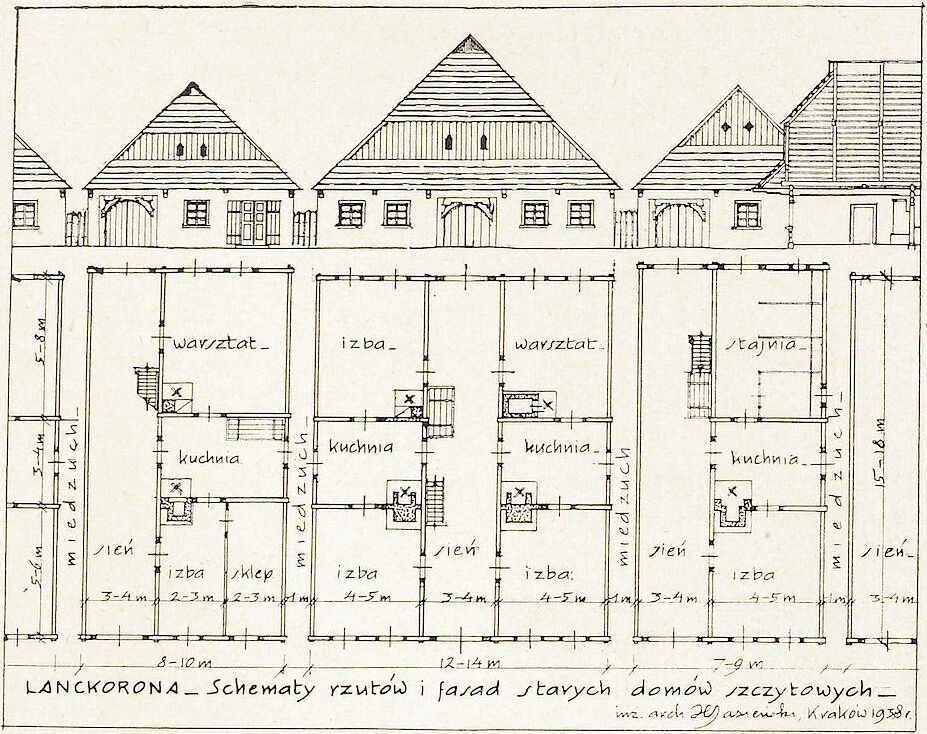 warsztat_
izba_
warsztat_
stajnia_
5-8 m
kuchnia
kuchnia
kuchnia_
kuchnia_
3-4 m
miedzuch_
miedzuch_
miedzuch
miedzuch_
15-18 m
sień
izba
sklep
izba
sień
izba
sień
izba
sień_
5-6 m
3-4 m
2-3 m
2-3 m
1 m
4-5 m
3-4 m
4-5 m
1 m
3-4 m
4-5 m
1 m
3-4 m
8-10 m
12-14 m
7-9 m
LANCKORONA_ Schematy rzutów i fasad starych domów szczytowych_
inż. arch Kraków 1938 r.